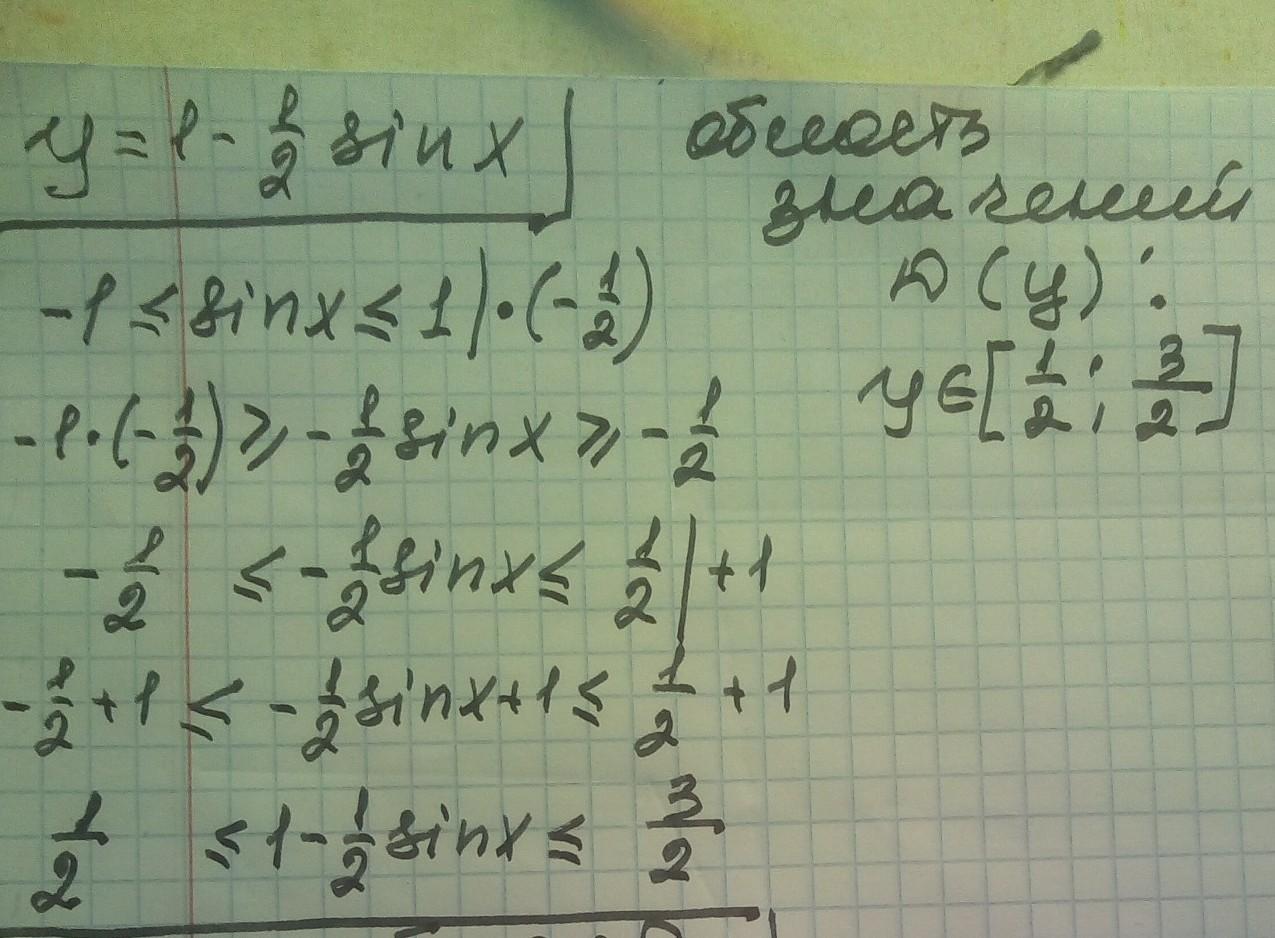 y = 1 - 1/2 sin x
область
значений
D (y) :
y ∈ [1/2 ; 3/2]
-1 ≤ sin x ≤ 1 | · (-1/2)
-1 · (-1/2) ≥ -1/2 sin x ≥ -1/2
-1/2 ≤ -1/2 sin x ≤ 1/2 | +1
-1/2 + 1 ≤ -1/2 sin x + 1 ≤ 1/2 + 1
1/2 ≤ 1 - 1/2 sin x ≤ 3/2